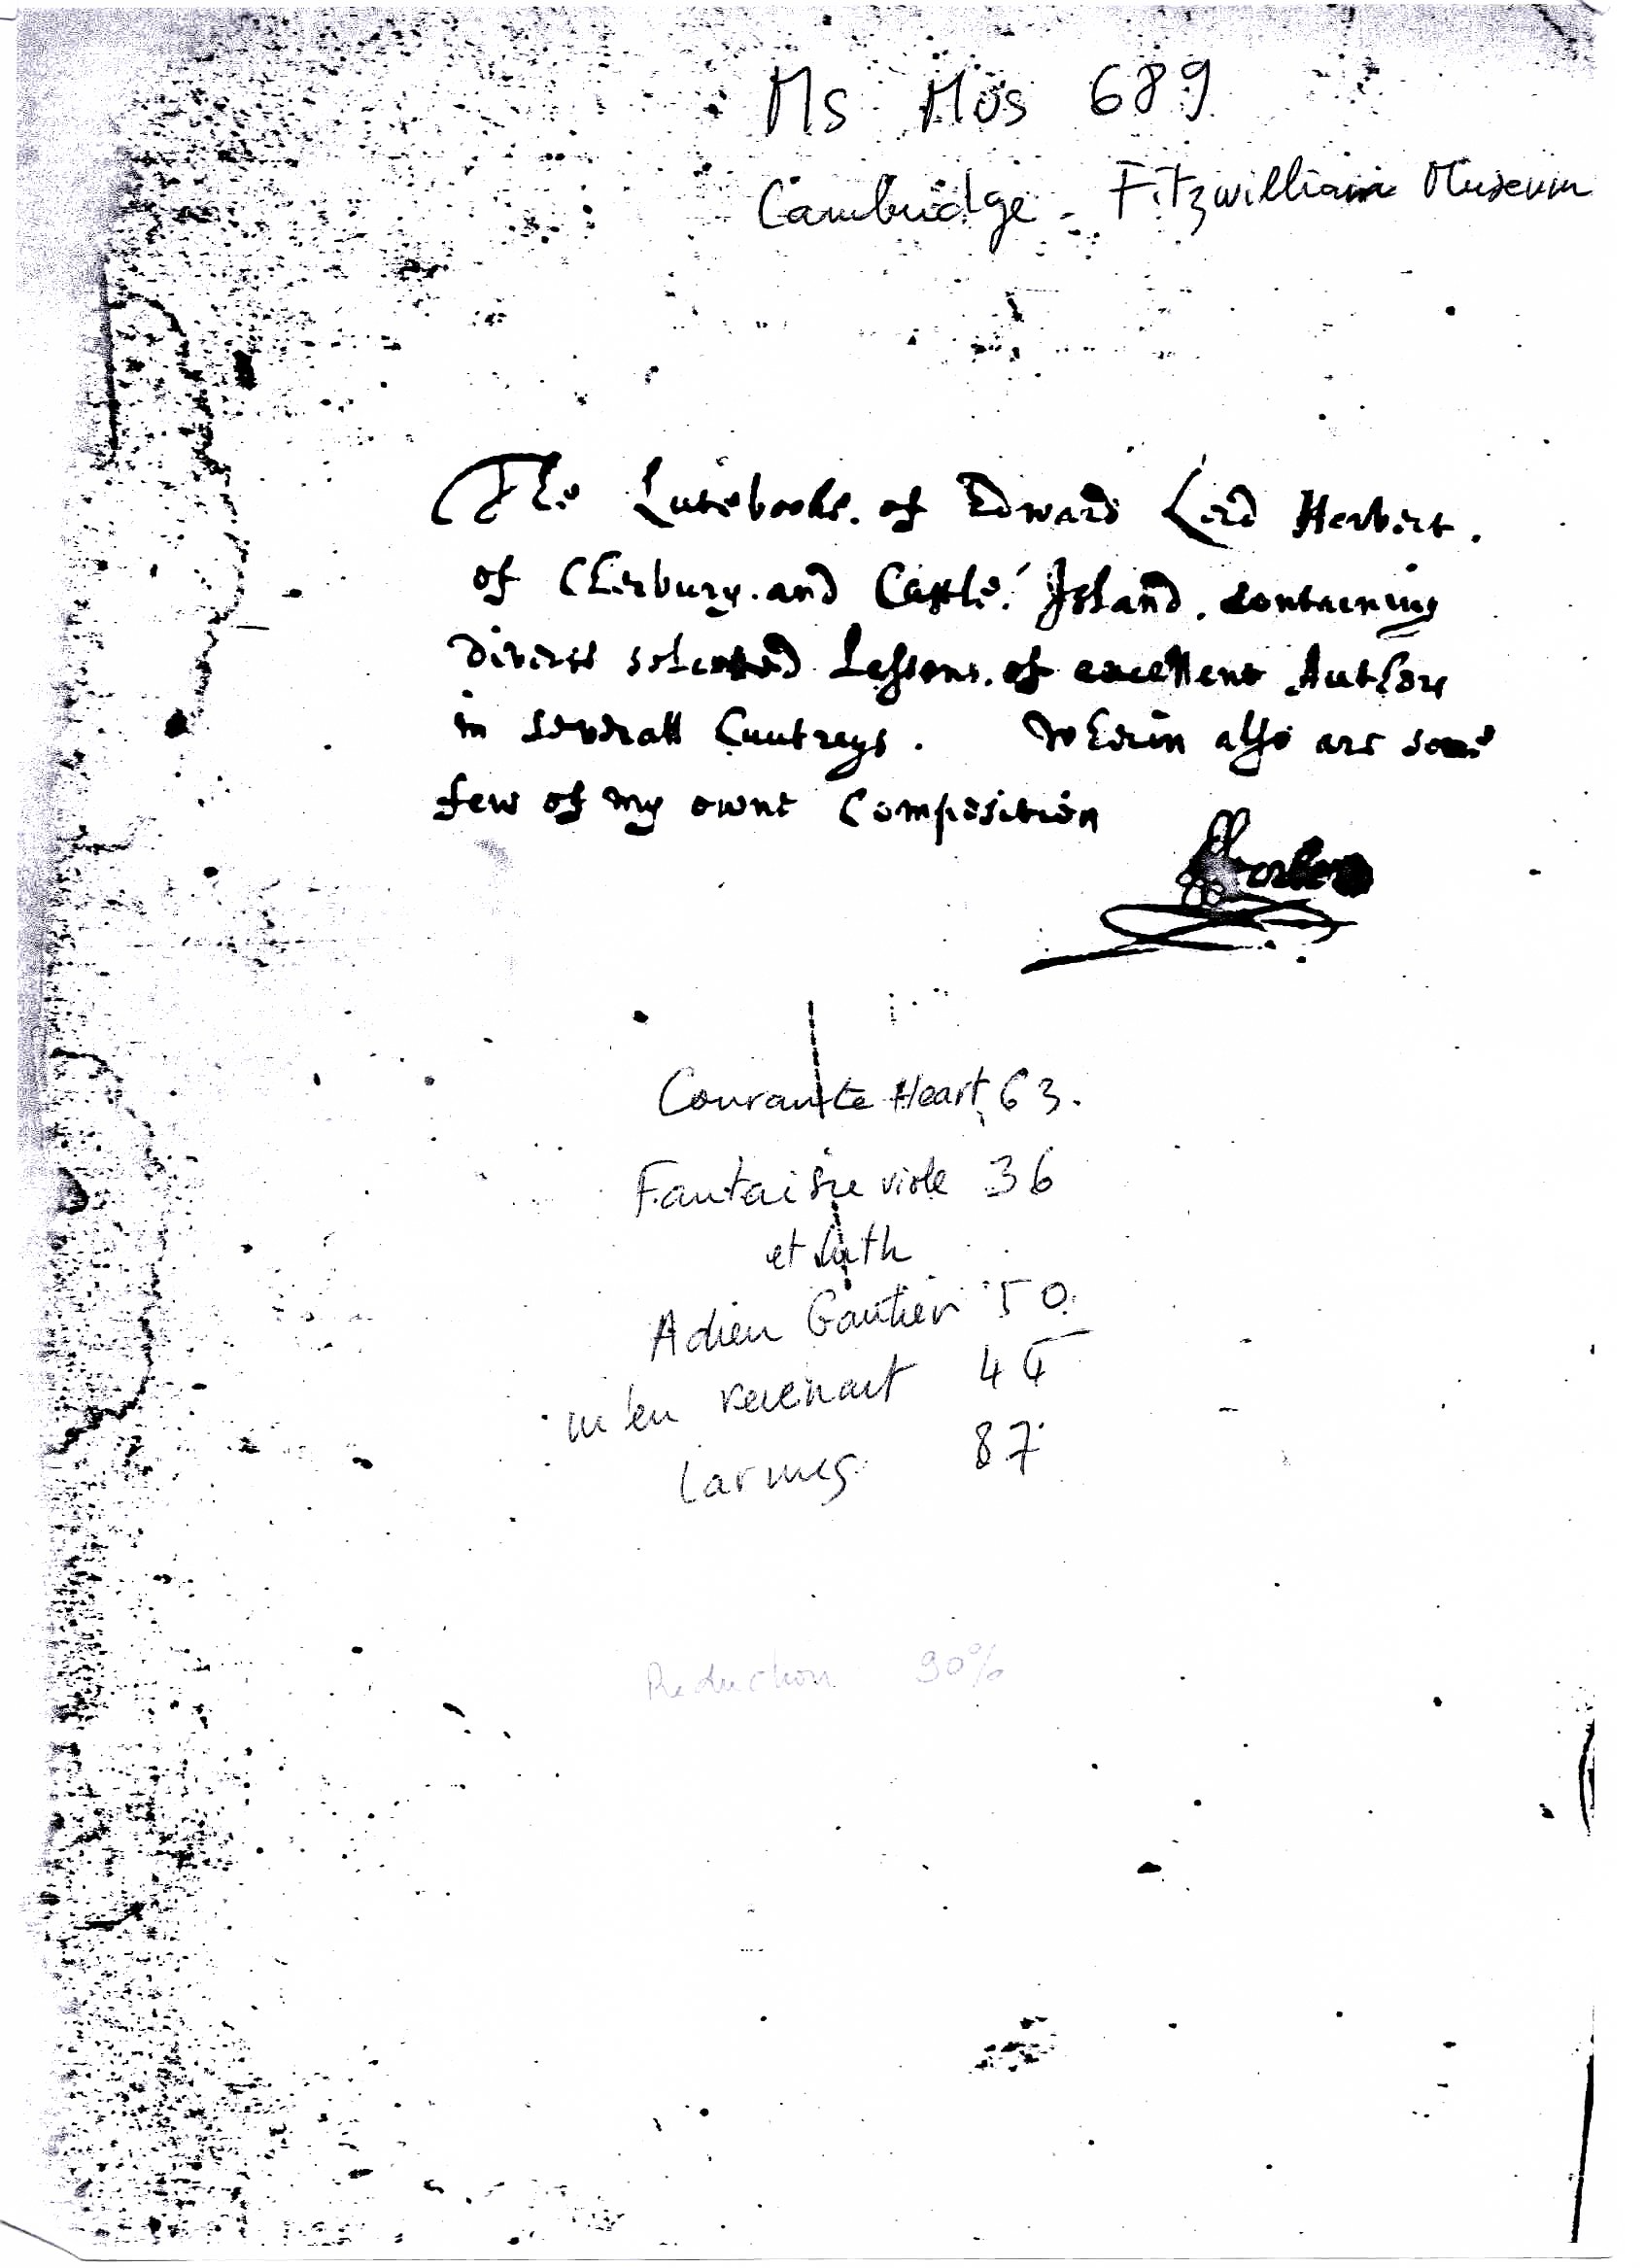 Ms Mus 689
Cambridge - Fitzwilliam Museum
The Lutebooke. of Edward Lord Herbert.
of Cherbury. and Castle. Island. containing
divers selected Lessons. of excellent Authors
in severall Cuntreys. Wherin also are some
few of my owne Composition
Courante Heart 63.
Fantaisie viole 36
et luth
Adieu Gautier 50
m'en revenant 45
Larmes 87
Reduction 90%